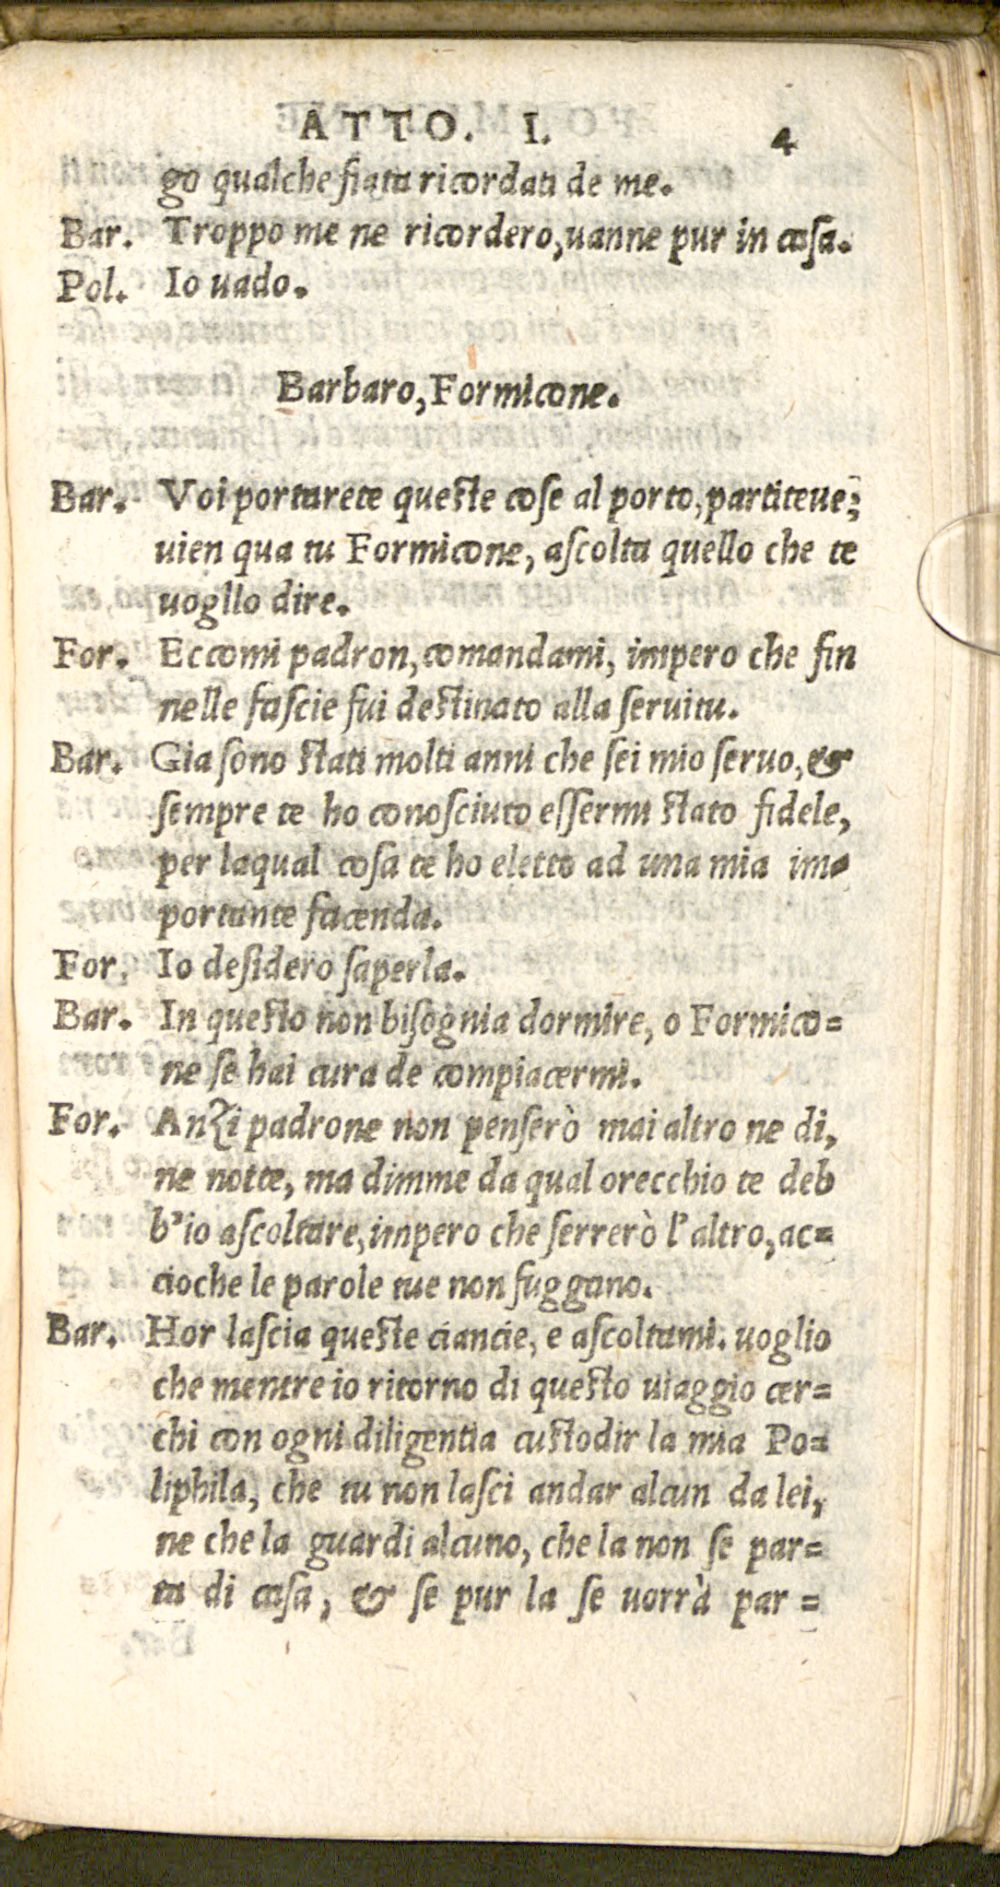 ATTO. I. 4
go qualche fiata ricordati de me.
Bar. Troppo me ne ricordero, uanne pur in casa.
Pol. Io uado.
Barbaro, Formicone.
Bar. Voi portarete queste cose al porto, partiteue;
uien qua tu Formicone, ascolta quello che te
uogllo dire.
For. Eccomi padron, comandami, impero che fin
nelle fascie fui destinato alla seruitu.
Bar. Gia sono stati molti anni che sei mio seruo, &
sempre te ho conosciuto essermi stato fidele,
per laqual cosa te ho eletto ad una mia im-
portante facenda.
For. Io desidero saperla.
Bar. In questo non bisognia dormire, o Formico=
ne se hai cura de compiacermi.
For. Anzi padrone non penserò mai altro ne di,
ne notte, ma dimme da qual orecchio te deb
b'io ascoltare, impero che serrerò l'altro, ac=
cioche le parole tue non fuggano.
Bar. Hor lascia queste ciancie, e ascoltami. uoglio
che mentre io ritorno di questo uiaggio cer=
chi con ogni diligentia custodir la mia Po=
liphila, che tu non lasci andar alcun da lei,
ne che la guardi alcuno, che la non se par=
ta di casa, & se pur la se uorrà par =